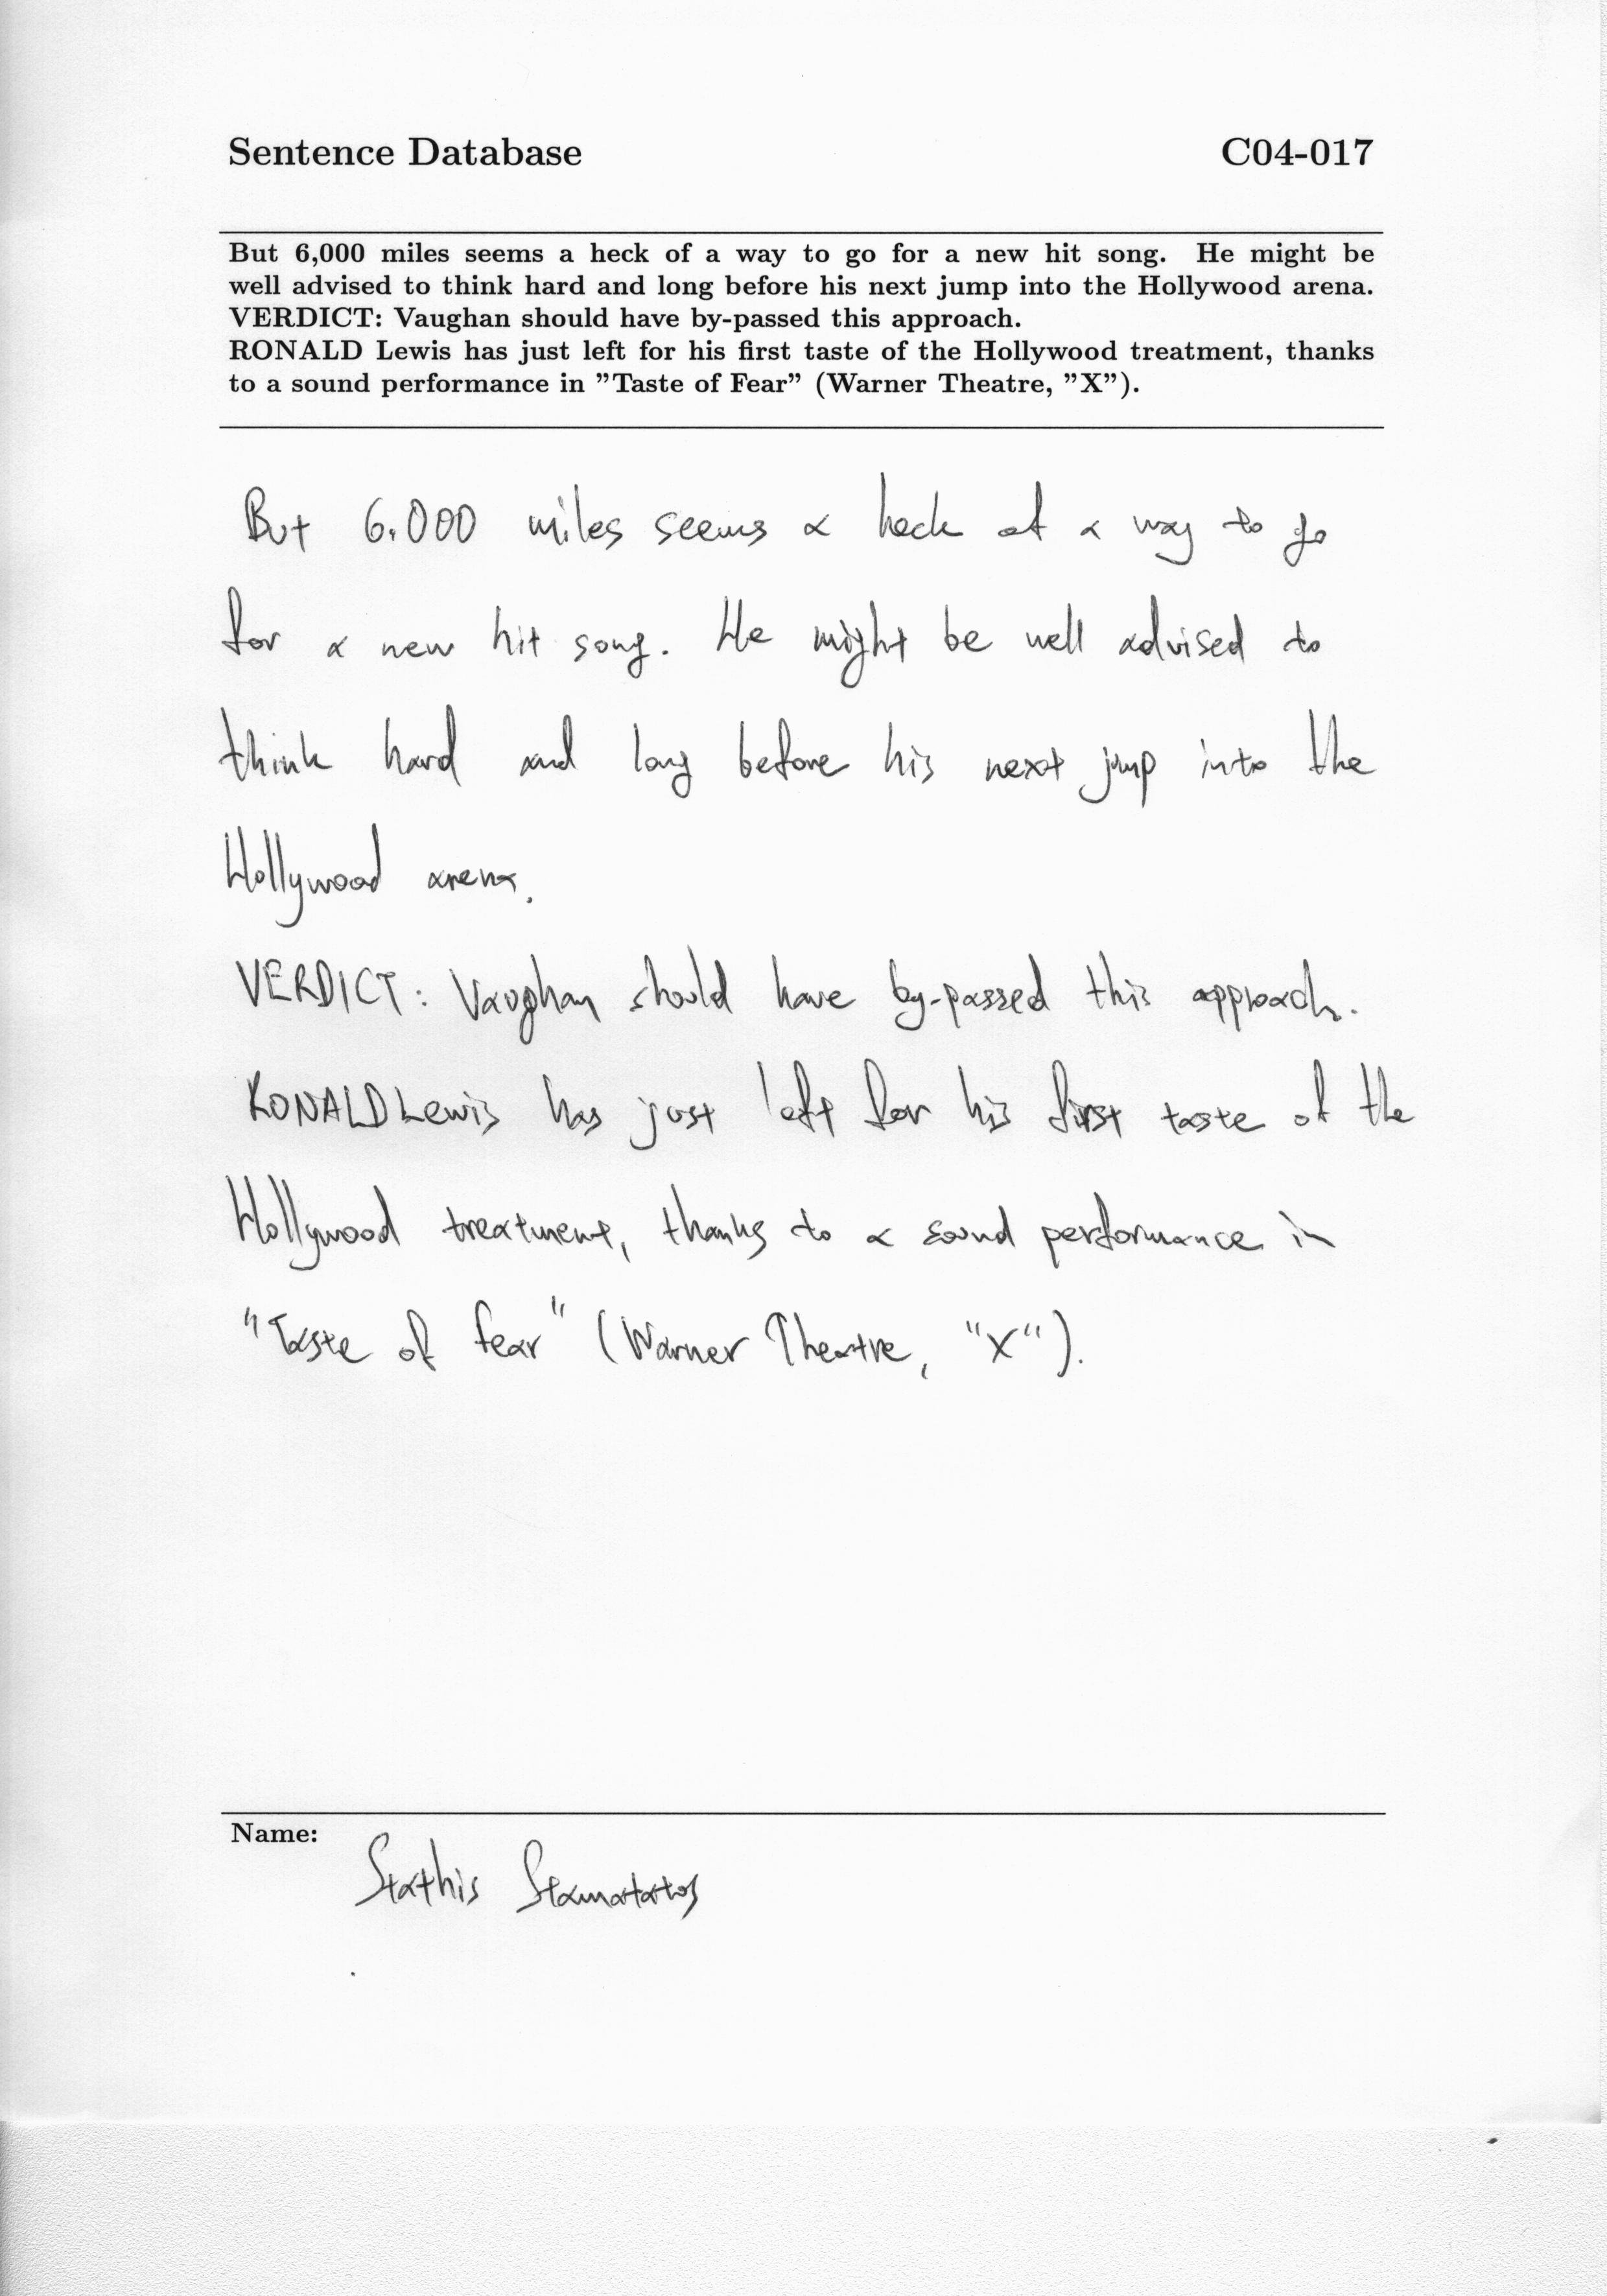 Sentence Database C04-017
But 6,000 miles seems a heck of a way to go for a new hit song. He might be
well advised to think hard and long before his next jump into the Hollywood arena.
VERDICT: Vaughan should have by-passed this approach.
RONALD Lewis has just left for his first taste of the Hollywood treatment, thanks
to a sound performance in ”Taste of Fear” (Warner Theatre, ”X”).
But 6.000 miles seems a heck of a way to go
for a new hit song. He might be well advised to
think hard and long before his next jump into the
Hollywood arena.
VERDICT: Vaughan should have by-passed this approach.
RONALD Lewis has just left for his first taste of the
Hollywood treatment, thanks to a sound performance in
"Taste of fear" (Warner Theatre, "X").
Name:
Stathis Stamatatos